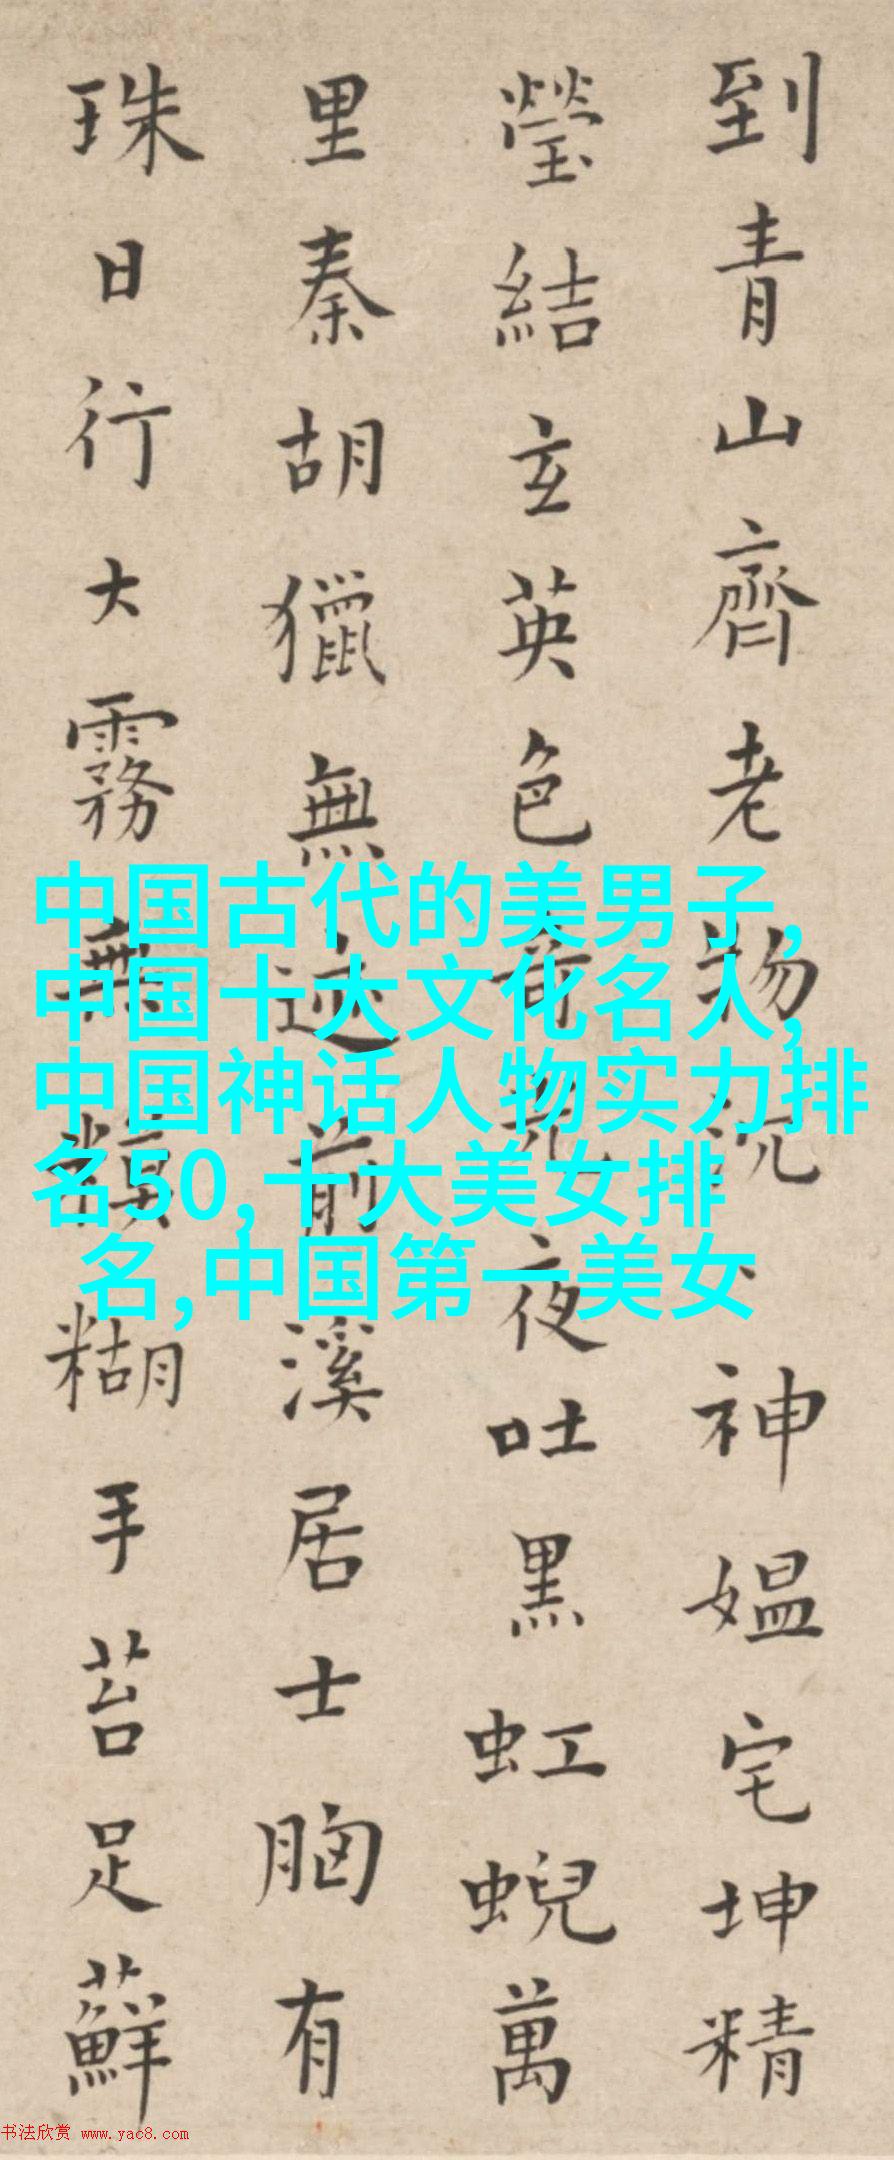 到青山齊老物神媼宅坤精
瑩結玄英色奇光夜吐黑虹蜺萬
里秦胡獵無迹前溪居士胸有
珠日行大霧無糢糊手苔足蘚
中国古代的美男子,
中国十大文化名人,
中国神话人物实力排
名50,十大美女排
名,中国第一美女
书法欣赏 www.yac8.com